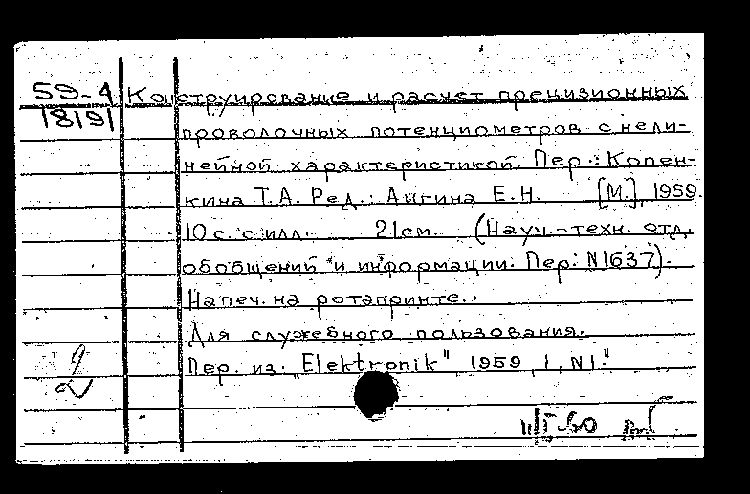 59-4
18191
Конструирование и расчет прецизионных
проволочных потенциометров с нели-
нейной характеристикой. Пер.: Копен-
кина Т.А. Ред.: Айгина Е.Н. [М.], 1959.
10 с. с илл. 21 см. (Науч.-техн. отд.
обобщений и информации. Пер: N1637).
Напеч. на ротапринте.
Для служебного пользования.
Пер. из: "Elektronik" 1959, 1, N1.